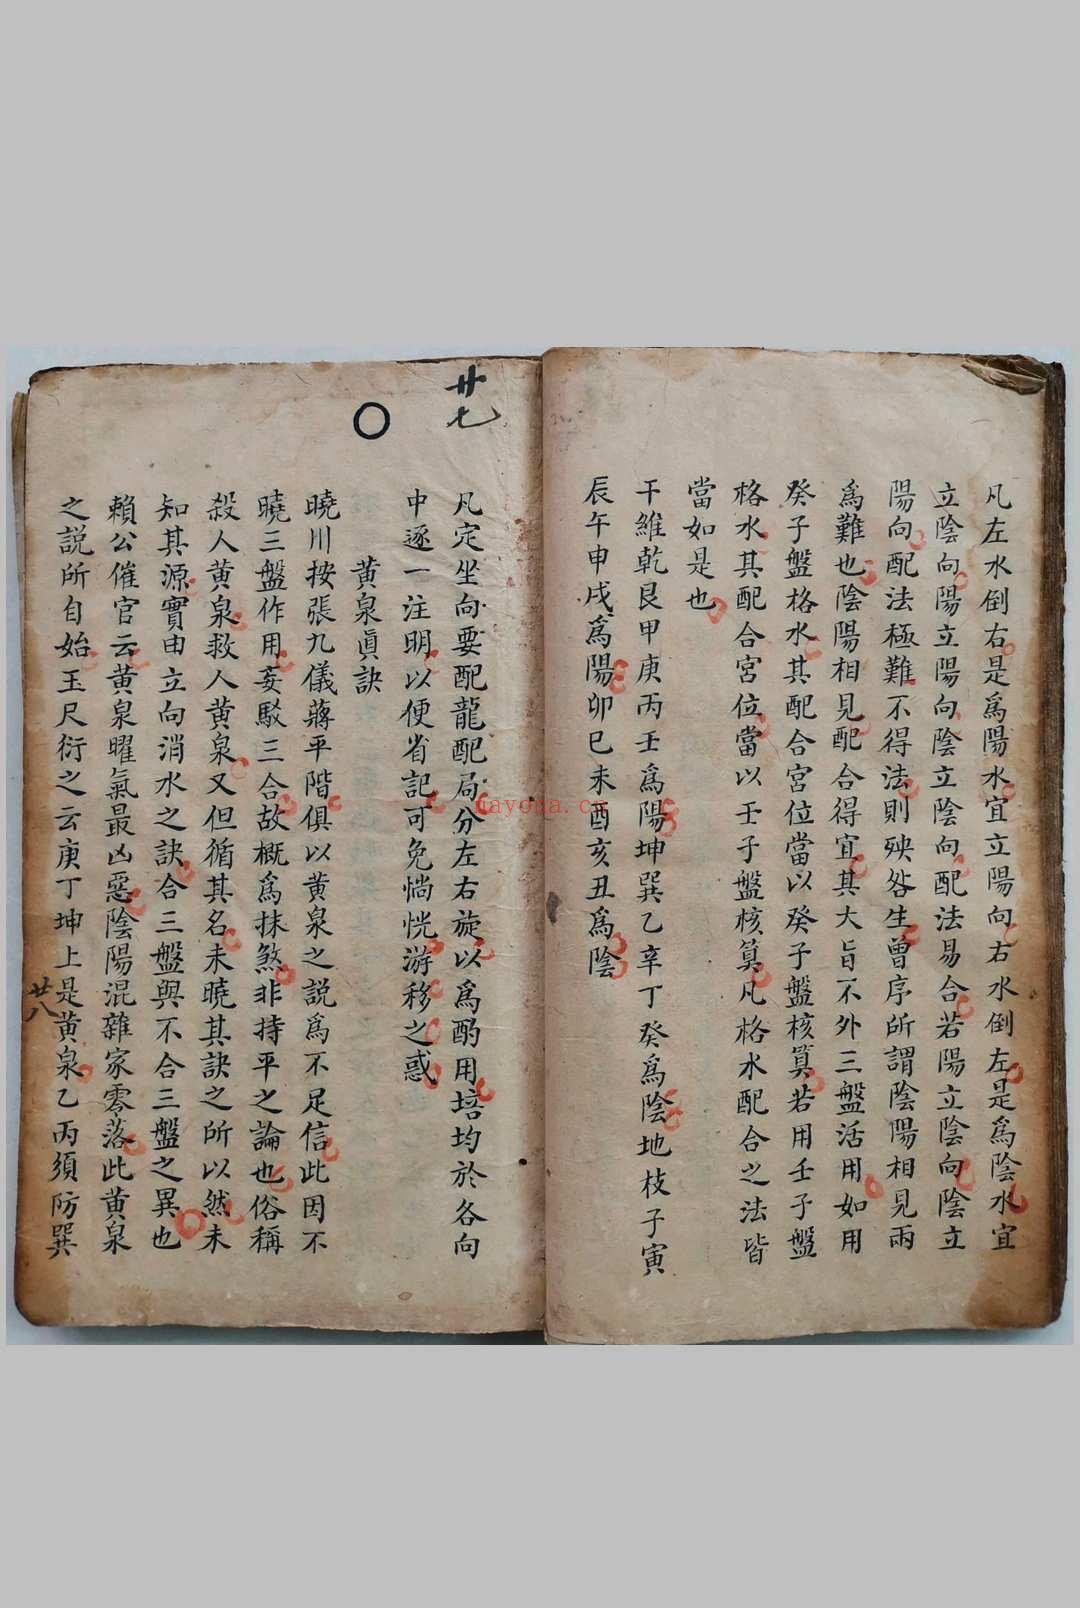 凡左水倒右是爲陽水宜立陽向右水倒左是爲陰水宜
立陰向陽立陽向陰立陰向配法易合若陽立陰向陰立
陽向配法極難不得法則殃咎生曾序所謂陰陽相見兩
爲難也陰陽相見配合得宜其大旨不外三盤活用如用
癸子盤格水其配合宮位當以癸子盤核算若用壬子盤
格水其配合宮位當以壬子盤核算凡格水配合之法皆
當如是也
干維乾艮甲庚丙壬爲陽坤巽乙辛丁癸爲陰地枝子寅
辰午申戌爲陽卯巳未酉亥丑爲陰
廿七
凡定坐向要配龍配局分左右旋以爲酌用培均於各向
中逐一注明以便省記可免惝恍游移之惑
黃泉眞訣
曉川按張九儀蔣平階俱以黃泉之說爲不足信此因不
曉三盤作用妄駁三合故概爲抹煞非持平之論也俗稱
殺人黃泉救人黃泉又但循其名未曉其訣之所以然未
知其源實由立向消水之訣合三盤與不合三盤之異也
賴公催官云黃泉曜氣最凶惡陰陽混雜家零落此黃泉
之說所自始玉尺衍之云庚丁坤上是黃泉乙丙須防巽
廿八
nayona.cn